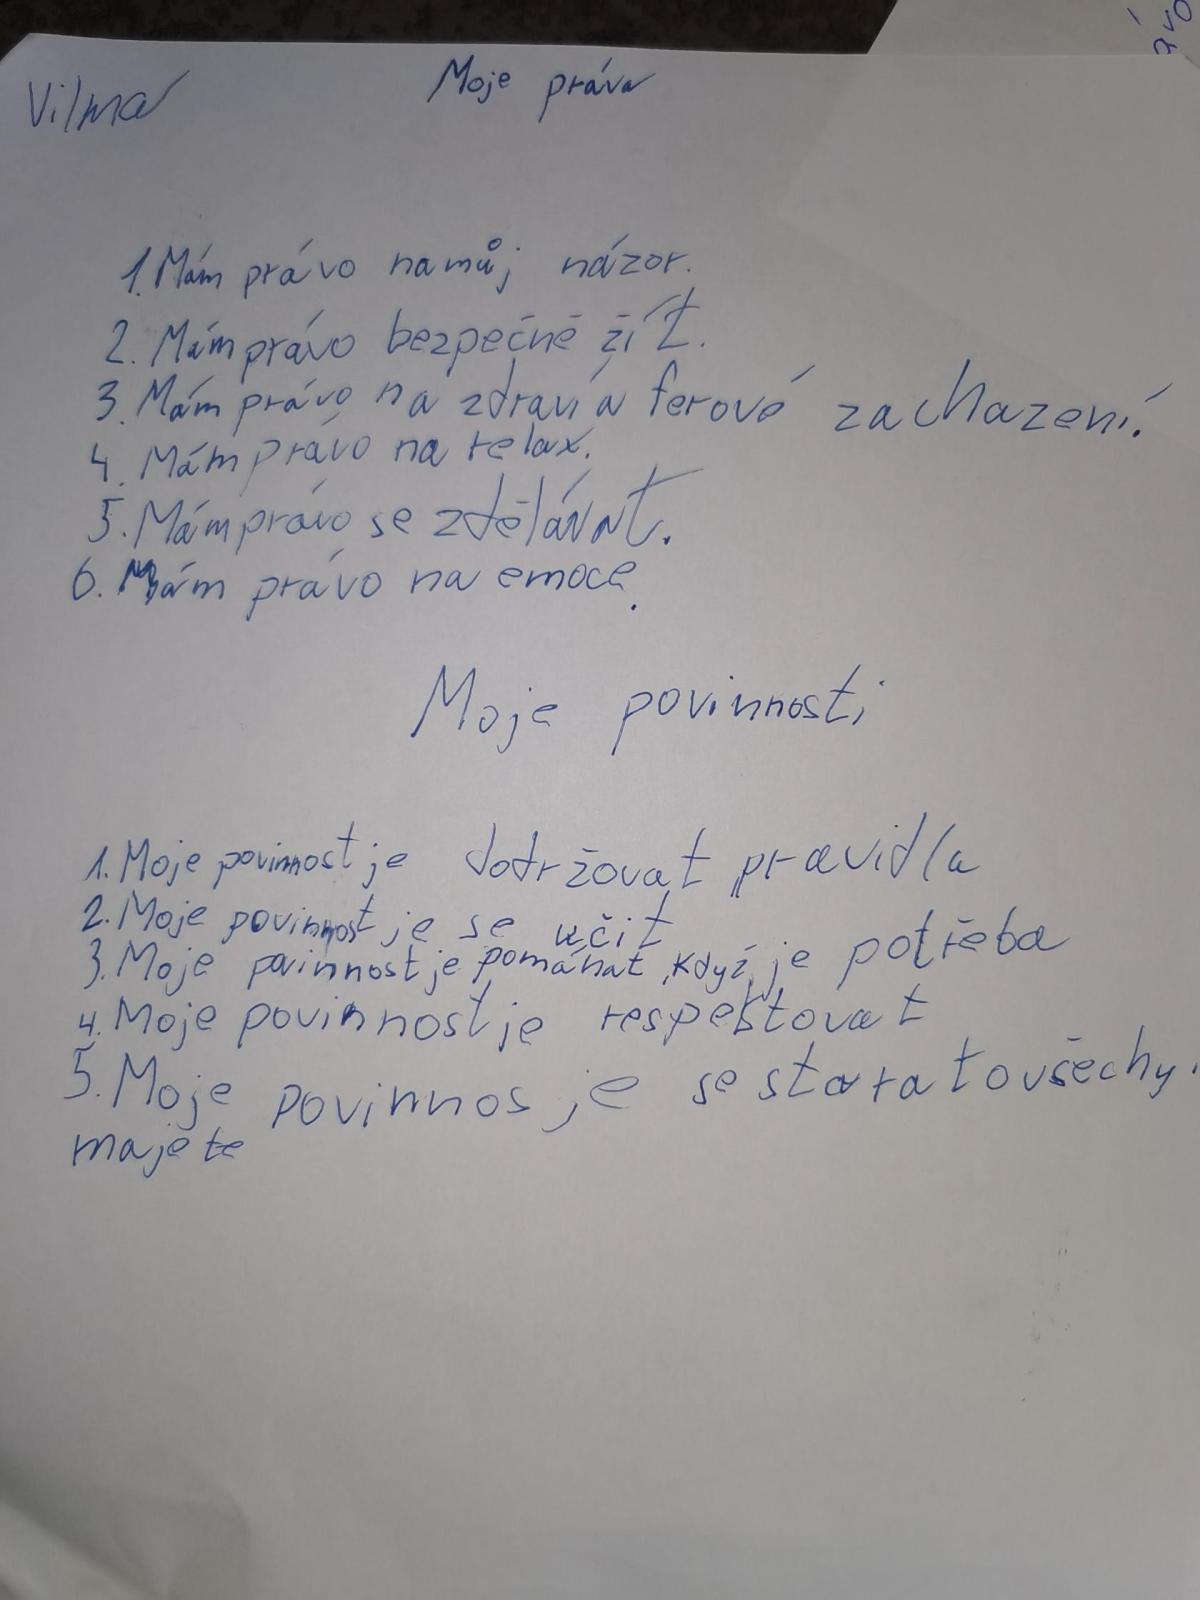 Vilma
Moje práva
1. Mám právo na můj názor.
2. Mám právo bezpečně žít.
3. Mám právo na zdraví a ferové zachazení.
4. Mám právo na relax.
5. Mám právo se zdělávat.
6. Mám právo na emoce.
Moje povinnosti
1. Moje povinnost je dotržovat pravidla
2. Moje povinnost je se učit
3. Moje povinnost je pomáhat, když je potřeba
4. Moje povinnost je respektovat
5. Moje povinnos je se starat o všechy.
majete